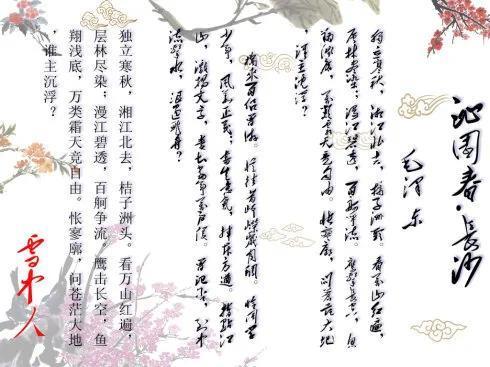 沁园春·长沙
毛泽东
独立寒秋，湘江北去，桔子洲头。看万山红遍，
层林尽染；漫江碧透，百舸争流。鹰击长空，鱼
翔浅底，万类霜天竞自由。怅寥廓，问苍茫大地
，谁主沉浮？
携来百侣曾游。忆往昔峥嵘岁月稠。恰同学
少年，风华正茂；书生意气，挥斥方遒。指点江
山，激扬文字，粪土当年万户侯。曾记否，到中
流击水，浪遏飞舟？
独立寒秋，湘江北去，桔子洲头。看万山红遍，
层林尽染；漫江碧透，百舸争流。鹰击长空，鱼
翔浅底，万类霜天竞自由。怅寥廓，问苍茫大地
，谁主沉浮？
雪中人